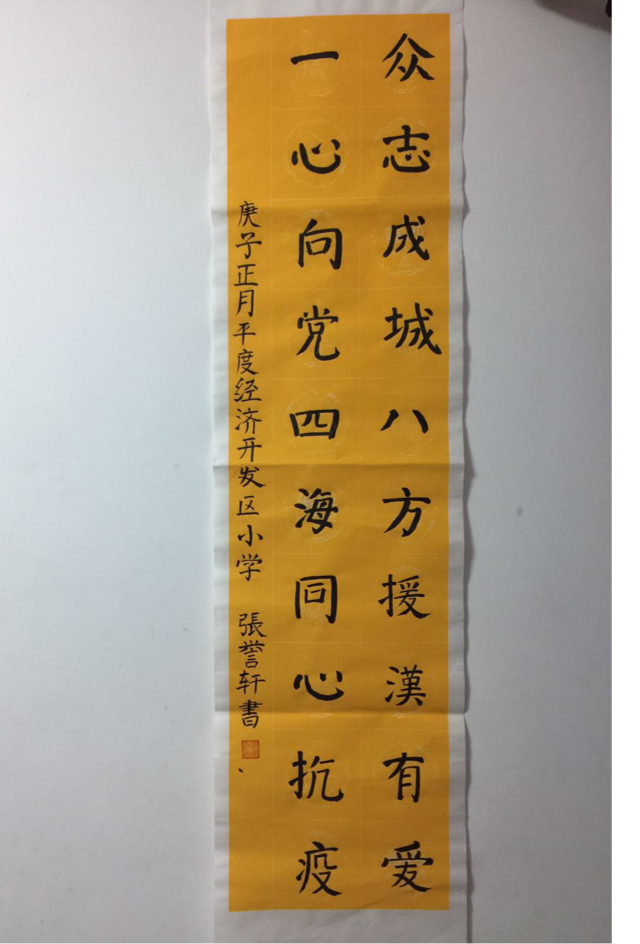 众志成城八方援漢有爱
一心向党四海同心抗疫
庚子正月平度经济开发区小学 張誉轩書